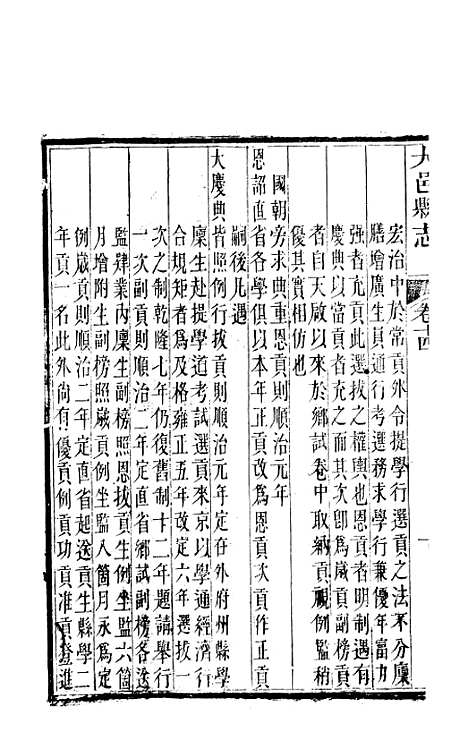 大邑縣志 卷十四 一
宏治中於常貢外令提學行選貢之法不分廩
膳增廣生員通行考選務求學行兼優年富力
強者充貢此選拔之權輿也恩貢者明制遇有
慶典以當貢者充之而其次卽為歲貢副榜貢
者自天啟以來於鄉試卷中取納貢視例監稍
優其實相仿也
國朝旁求典重恩貢則順治元年
恩詔直省各學俱以本年正貢改為恩貢次貢作正貢
嗣後凡遇
大慶典皆照例行拔貢則順治元年定在外府州縣學
廩生赴提學道考試選貢來京以學通經濟行
合規矩者為及格雍正五年改定六年選拔一
次之制乾隆七年仍復舊制十二年題請舉行
一次副貢則順治二年定直省鄉試副榜各送
監肄業內廩生副榜照恩拔貢生例坐監六箇
月增附生副榜照歲貢例坐監八箇月永為定
例歲貢則順治二年定直省起送貢生縣學二
年貢一名此外尚有優貢例貢功貢准貢登進